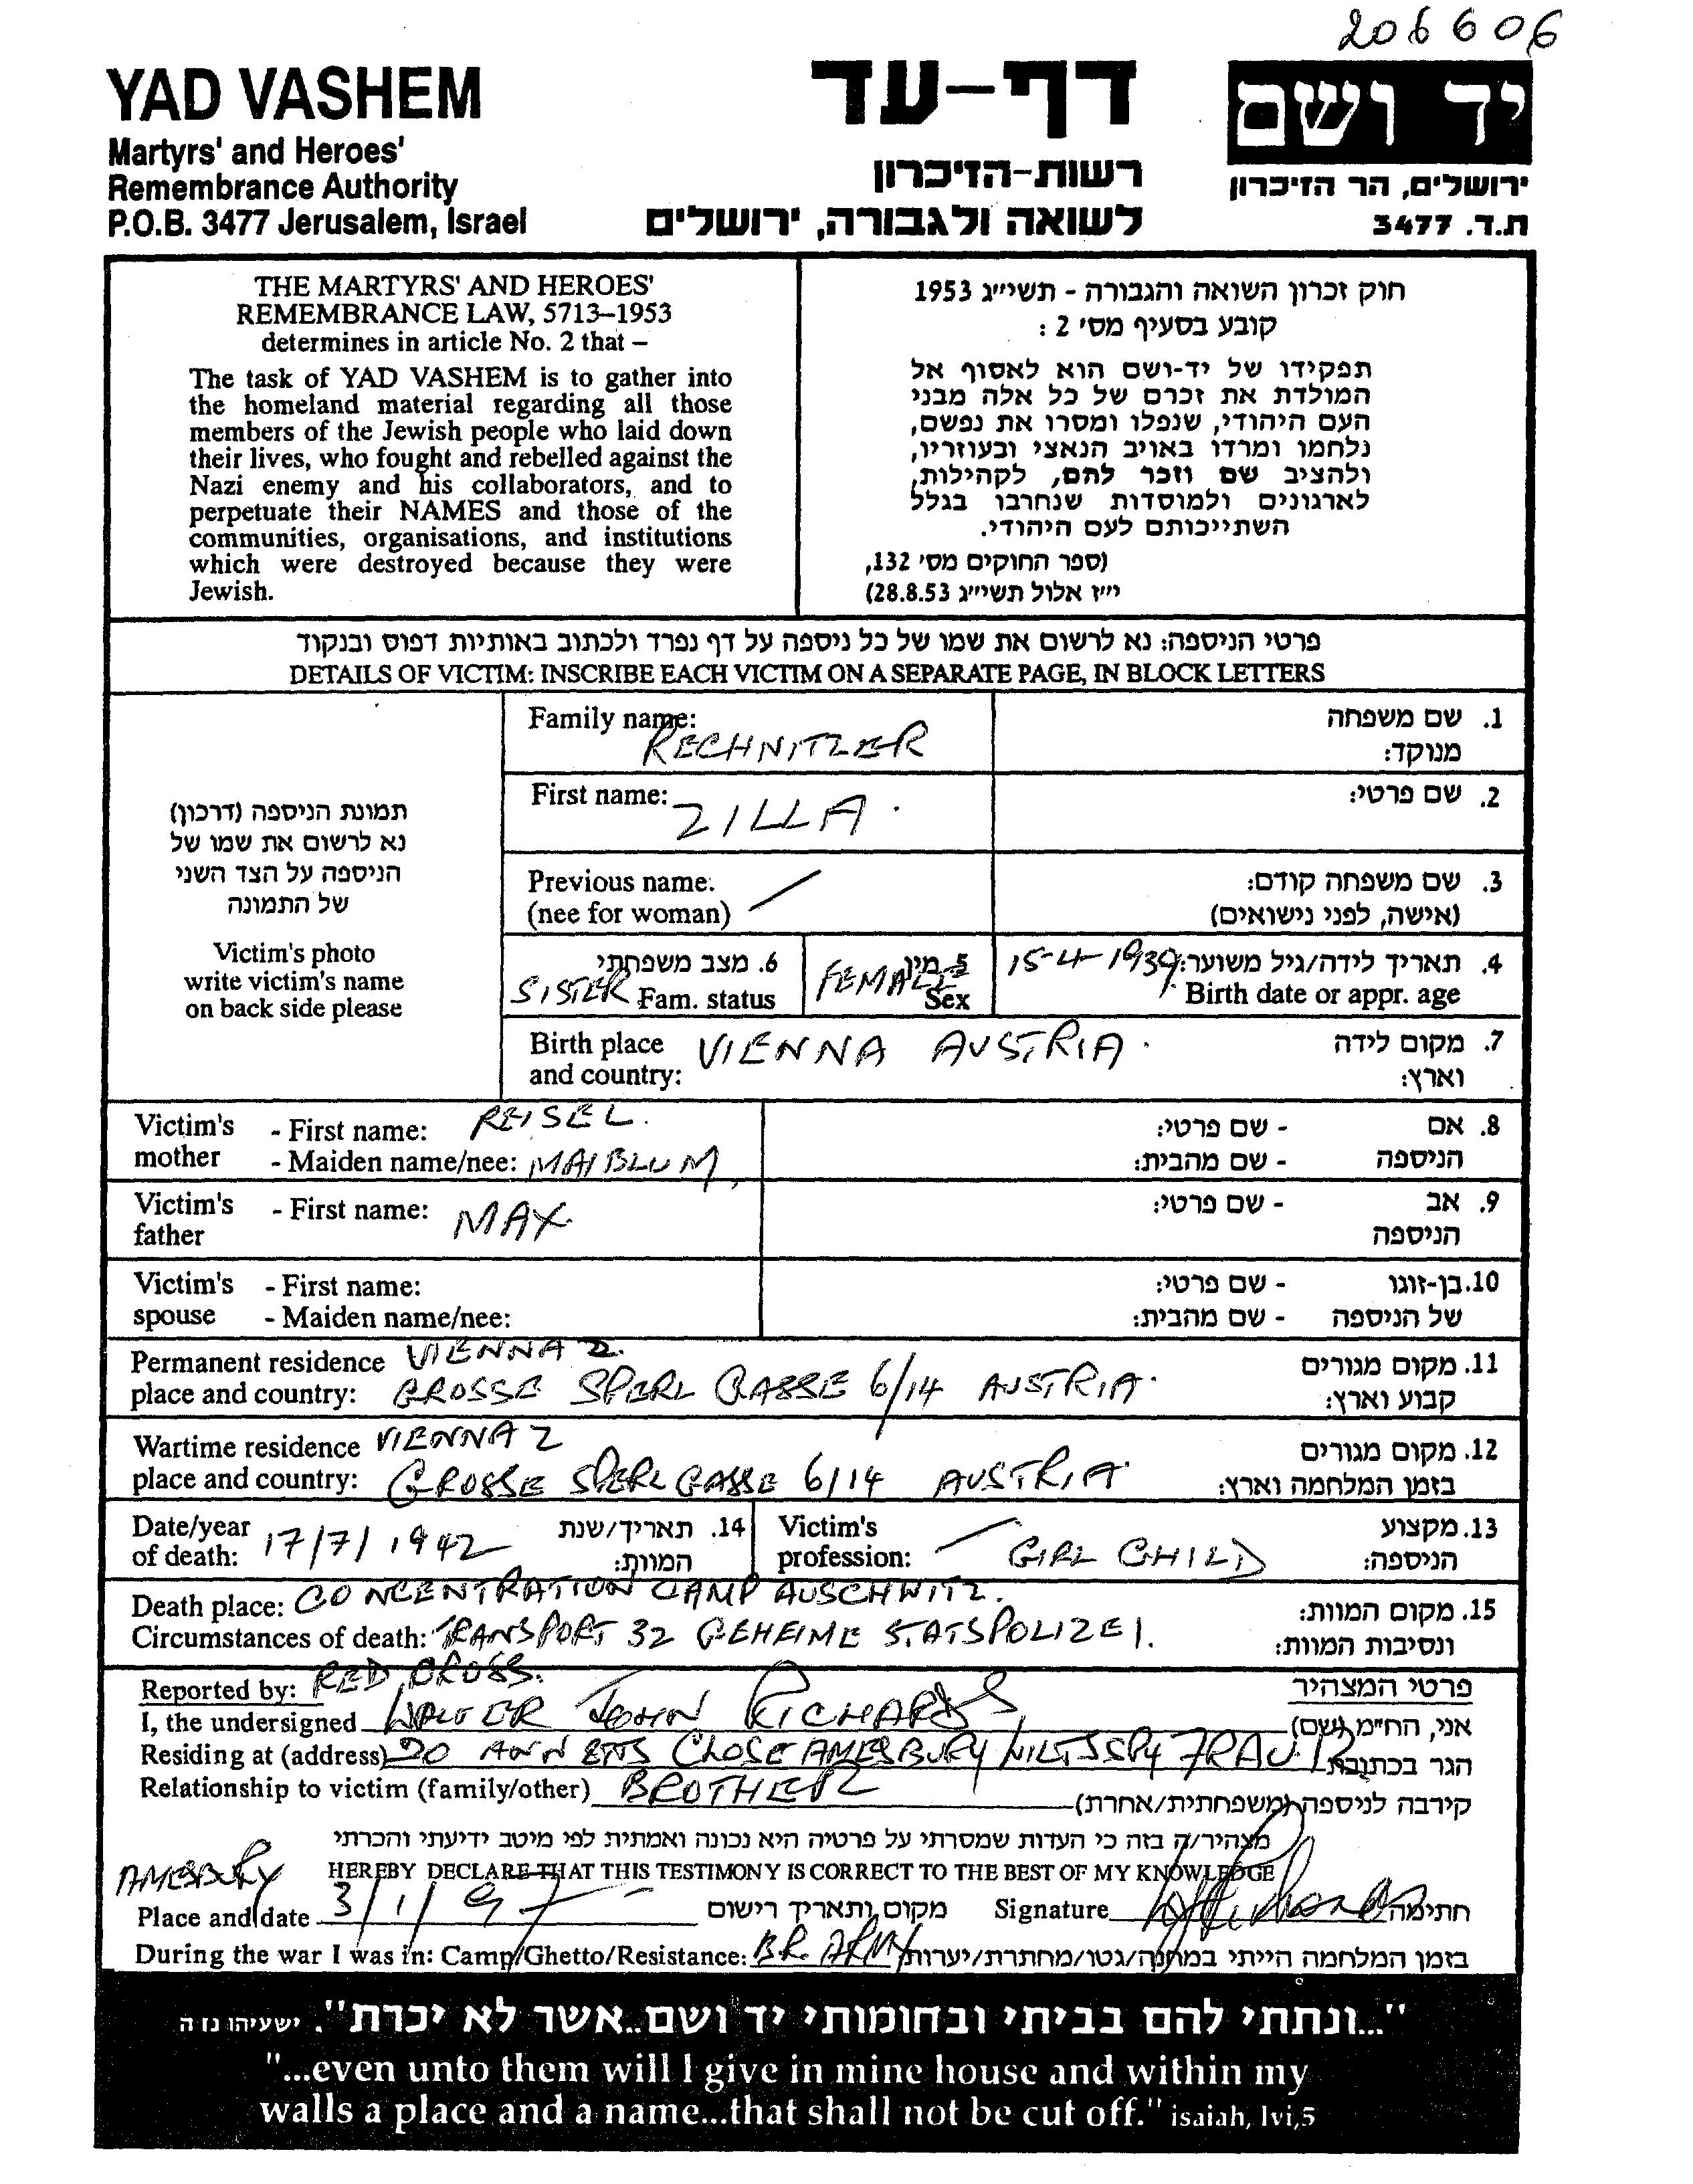 206606
YAD VASHEM
Martyrs' and Heroes'
Remembrance Authority
P.O.B. 3477 Jerusalem, Israel
דף-עד
רשות-הזיכרון
לשואה ולגבורה, ירושלים
יד ושם
ירושלים, הר הזיכרון
ת.ד. 3477
THE MARTYRS' AND HEROES'
REMEMBRANCE LAW, 5713–1953
determines in article No. 2 that –
The task of YAD VASHEM is to gather into
the homeland material regarding all those
members of the Jewish people who laid down
their lives, who fought and rebelled against the
Nazi enemy and his collaborators, and to
perpetuate their NAMES and those of the
communities, organisations, and institutions
which were destroyed because they were
Jewish.
חוק זכרון השואה והגבורה - תשי״ג 1953
קובע בסעיף מס׳ 2 :
תפקידו של יד-ושם הוא לאסוף אל
המולדת את זכרם של כל אלה מבני
העם היהודי, שנפלו ומסרו את נפשם,
נלחמו ומרדו באויב הנאצי ובעוזריו,
ולהציב שם וזכר להם, לקהילות,
לארגונים ולמוסדות שנחרבו בגלל
השתייכותם לעם היהודי.
(ספר החוקים מס׳ 132,
י״ז אלול תשי״ג 28.8.53)
פרטי הניספה: נא לרשום את שמו של כל ניספה על דף נפרד ולכתוב באותיות דפוס ובנקוד
DETAILS OF VICTIM: INSCRIBE EACH VICTIM ON A SEPARATE PAGE, IN BLOCK LETTERS
תמונת הניספה (דרכון)
נא לרשום את שמו של
הניספה על הצד השני
של התמונה
Victim's photo
write victim's name
on back side please
Family name: 1. שם משפחה
RECHNITZER מנוקד:
First name: ZILLA. 2. שם פרטי:
Previous name: 3. שם משפחה קודם:
(nee for woman) (אישה, לפני נישואים)
6. מצב משפחתי 5. מין 15-4-1939 4. תאריך לידה/גיל משוער:
SISTER Fam. status FEMALE Sex Birth date or appr. age
Birth place VIENNA AUSTRIA. 7. מקום לידה
and country: וארץ:
Victim's - First name: REISEL. - שם פרטי: 8. אם
mother - Maiden name/nee: MAIBLUM - שם מהבית: הניספה
Victim's - First name: MAX - שם פרטי: 9. אב
father הניספה
Victim's - First name: - שם פרטי: 10. בן-זוגו
spouse - Maiden name/nee: - שם מהבית: של הניספה
Permanent residence VIENNA 2. 11. מקום מגורים
place and country: GROSSE SPERL GASSE 6/14 AUSTRIA. קבוע וארץ:
Wartime residence VIENNA 2 12. מקום מגורים
place and country: GROSSE SPERL GASSE 6/14 AUSTRIA בזמן המלחמה וארץ:
Date/year 17/7/1942 14. תאריך/שנת Victim's 13. מקצוע
of death: המוות: profession: GIRL CHILD הניספה:
Death place: CONCENTRATION CAMP AUSCHWITZ. 15. מקום המוות:
Circumstances of death: TRANSPORT 32 GEHEIME STATSPOLIZEI. ונסיבות המוות:
Reported by: RED CROSS. פרטי המצהיר
I, the undersigned WALTER JOHN RICHARDS אני, הח״מ (שם)
Residing at (address) 20 ANNETTS CLOSE AMESBURY WILTS SP4 הגר בכתובת
Relationship to victim (family/other) BROTHER קירבה לניספה (משפחתית/אחרת)
מצהיר/ה בזה כי העדות שמסרתי על פרטיה היא נכונה ואמתית לפי מיטב ידיעתי והכרתי
AMESBURY HEREBY DECLARE THAT THIS TESTIMONY IS CORRECT TO THE BEST OF MY KNOWLEDGE
Place and date 3/1/97 מקום ותאריך רישום Signature חתימה
During the war I was in: Camp/Ghetto/Resistance: BR. ARMY בזמן המלחמה הייתי במחנה/גטו/מחתרת/יערות
"...ונתתי להם בביתי ובחומותי יד ושם..אשר לא יכרת". ישעיהו נז ה
"...even unto them will I give in mine house and within my
walls a place and a name...that shall not be cut off." isaiah, lvi,5